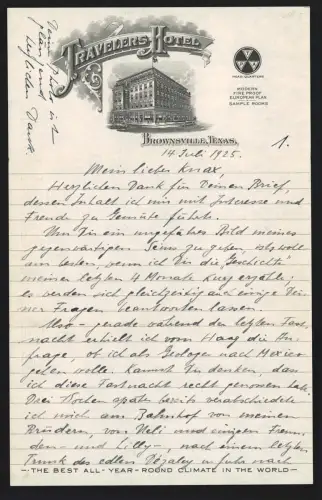 TRAVELERS HOTEL
MODERN
FIRE PROOF
EUROPEAN PLAN
SAMPLE ROOMS
BROWNSVILLE, TEXAS,
1.
14 Juli 1925.
Mein lieber Knax,
Herzlichen Dank für Deinen Brief,
dessen Inhalt ich mir mit Interesse und
Freude zu Gemüte führte.
Um Dir ein ungefähres Bild meines
gegenwärtigen Seins zu geben, ists wohl
am besten, wenn ich Dir die "Geschichte"
meiner letzten 4 Monate kurz erzähle;
es werden sich gleichzeitig auch einige Dei-
ner Fragen beantworten lassen.
Also - gerade während der letzten Fast-
nacht erhielt ich vom Haag die An-
frage, ob ich als Geologe nach Mexico
gehen wolle. Kannst Dir denken, dass
ich diese Fastnacht recht genossen habe.
Drei Wochen später bereits verabschiedete
ich mich am Bahnhof von meinen
Brüdern, von Heli und einigen Freun-
den - und Lilly -, nach einem letzten
Trunk des edlen Dézaley u. fuhr nach
THE BEST ALL-YEAR-ROUND CLIMATE IN THE WORLD
Deine Photo ist
herzlichen Dank.